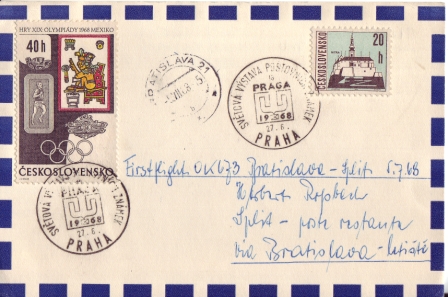 HRY XIX OLYMPIÁDY 1968 MEXIKO
40 h
ČESKOSLOVENSKO
BRATISLAVA 21
SVĚTOVÁ VÝSTAVA POŠTOVNÍCH ZNÁMEK
PRAGA
1968
27.6.
PRAHA
20
h
ČESKOSLOVENSKO
SVĚTOVÁ VÝSTAVA POŠTOVNÍCH ZNÁMEK
PRAGA
1968
27.6.
PRAHA
First flight OK Bratislava - Split 5.7.68
Herbert
Split - poste restante
via Bratislava - letiště